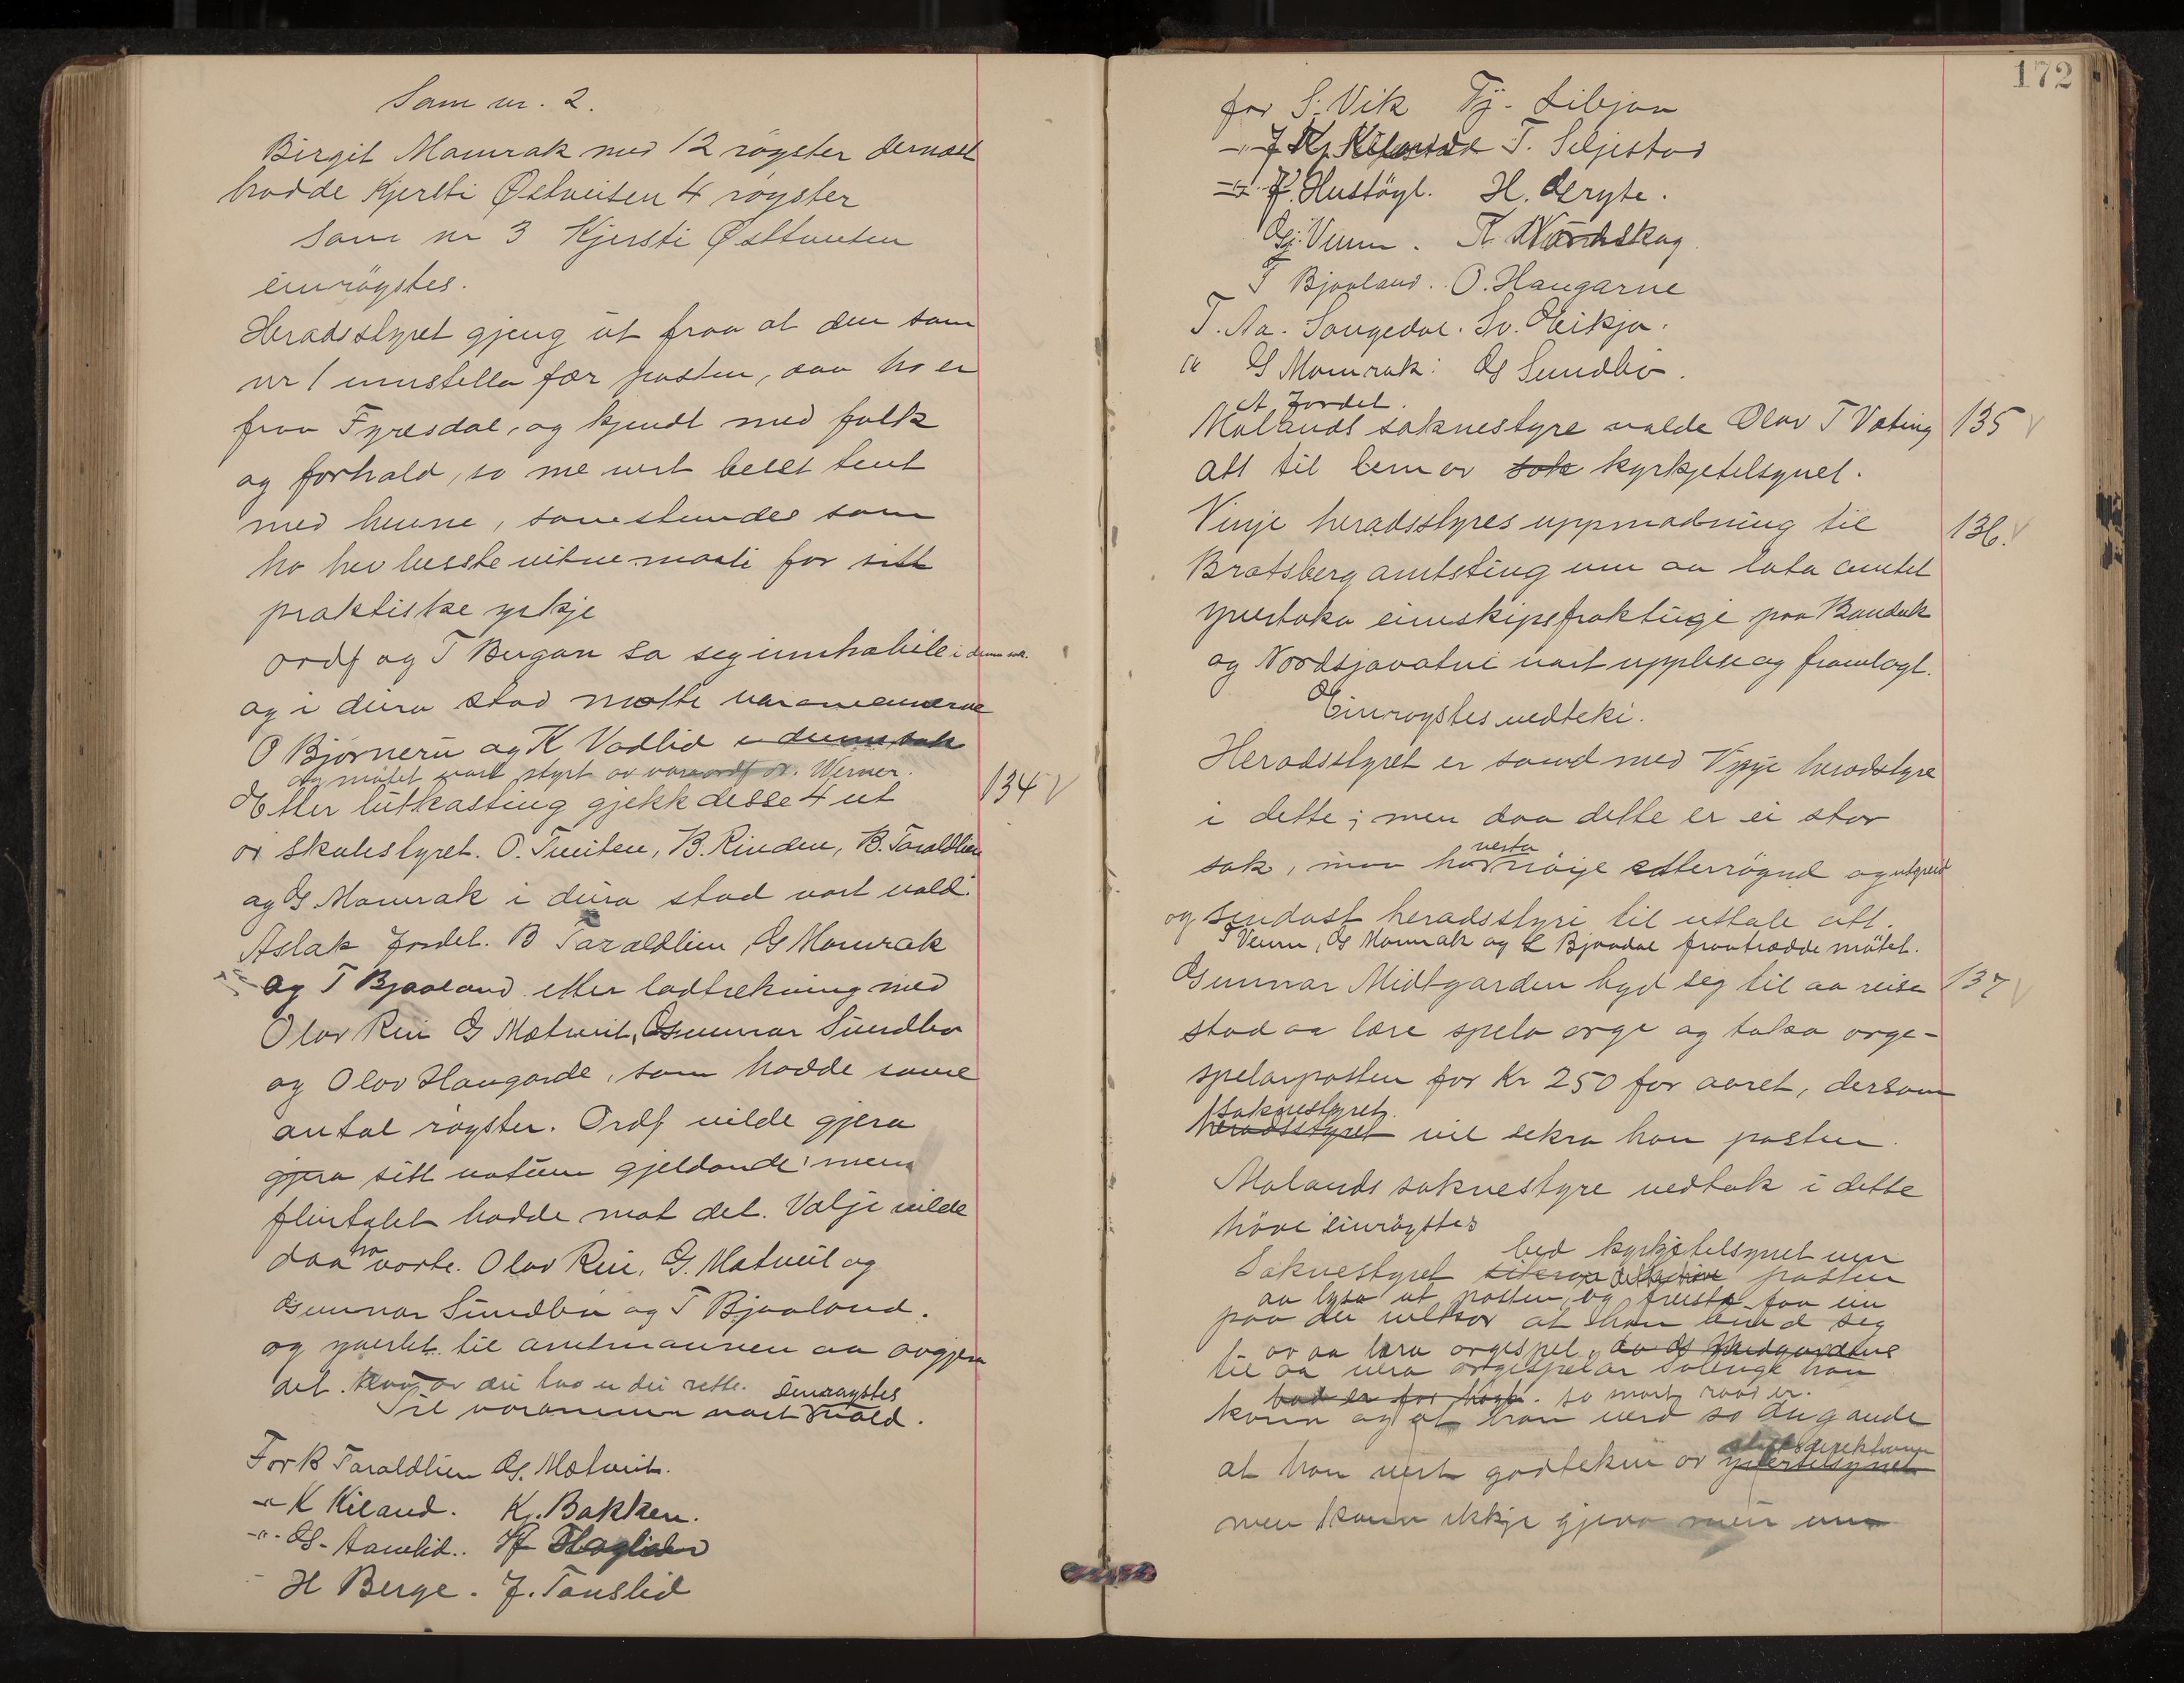 Som nr. 2.
Birgit Momrak med 12 röyster dernæst
hadde Kjersti Østveiten 4 röyster
Som nr 3 Kjersti Østtveiten
einröystes.
Heradsstyret gjeng ut fraa at den som
nr 1 innstella fær posten, daa ho er
fraa Fyresdal, og kjendt med folk
og forhald, so me vert best tent
med henne, somestundes som
ho hev beste vitnemaali for sitt
praktiske yrkje
Ordf og T Bergan sa seg innhabile i denne sak.
og i deira stad møtte varamennerne
O Björnerü og K Vadlid i denne sak
og mötet vart styrt av varaordf. Werner.
Etter lutkasting gjekk desse 4 ut 134 V
or skulestyret. O. Tveiten, B. Rinden, B. Taraldlien
og G. Momrak i deira stad vart vald.
Aslak Jordel. B Taraldlien, G Momrak
og T Bjaaland etter lodtrekning med
Olav Rui G Mætveit, Gunnar Sundbø
og Olav Haugarde, som hadde same
antal röyster. Ordf vilde gjera
gjera sitt votum gjeldande men
fleirtalet hadde mot det. Valje vilde
daa ha vorte. Olav Rui, G. Mætveit og
Gunnar Sundbö og T Bjaaland.
og yverlet til amtmannen aa avgjera
det. Kvar av dei tvo er dei rette. einröystes
Til varamenn vart vald.
For B Taraldlien G. Mætveit.
-"- K Kiland. Kj. Bakken.
-"- G. Aamlid.. H Haglider
H Berge. J. Tanslid
172
for S. Vik Tj. Libjan
-"- J Kj. Kilanda T. Seljestad
-"- J. Hustöyl. H. Gryte.
Gj. Veum. K. Nordskog.
T Bjaaland. O. Haugarne
T. Aa. Songedal. Sv. Eikja.
" G Momrak: G Sundbö.
A Jordel.
Molands soknestyre valde Olav T Væting 135 V
att til lem av sok kyrkjetilsynet.
Vinje heradsstyres uppmodning til 136. V
Bratsberg amtsting um aa lata amtet
yvertaka eimskipsfraktuge paa Bandak
og Nordsjøvatni vart upplese og framlagt.
Einröystes vedteki.
Heradsstyret er samd med Vinje heradstyre
i dette; men daa dette er ei stor
sak, maa ho verta nöije etterrögnd og utgreid
og sendast heradsstyri til uttale att.
T Veum, G Momrak og E Bjaadal fraatrædde mötet.
Gunnar Midtgarden byd seg til aa reise 137 V
stad aa lære spela orge og taka orge-
spelarposten for Kr 250 for aaret, dersom
soknestyret
heradsstyret vil sekra han posten.
Molands soknestyre vedtok i dette
höve einröystes
bed kyrkjetilsynet um
Soknestyret posten
aa lysa ut posten, og freista faa ein
paa dei vilkor at han bind seg
av aa læra orgespel, av G Midgardens
til aa vera orgespelar solenge han
bod er for högt. so snart raad er.
kann og at han verd so dugande
stiftsdirektionen
at han vert godtekin av yvertilsynet
men kann ikkje gjera meir um